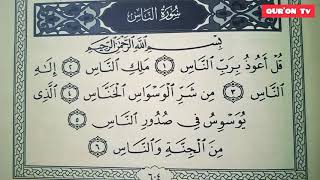 QUR'ON TV
سُورَةُ النَّاسِ
بِسْمِ اللَّهِ الرَّحْمَٰنِ الرَّحِيمِ
قُلْ أَعُوذُ بِرَبِّ النَّاسِ ١ مَلِكِ النَّاسِ ٢ إِلَٰهِ
النَّاسِ ٣ مِن شَرِّ الْوَسْوَاسِ الْخَنَّاسِ ٤ الَّذِي
يُوَسْوِسُ فِي صُدُورِ النَّاسِ ٥
مِنَ الْجِنَّةِ وَالنَّاسِ ٦
٦٠٤